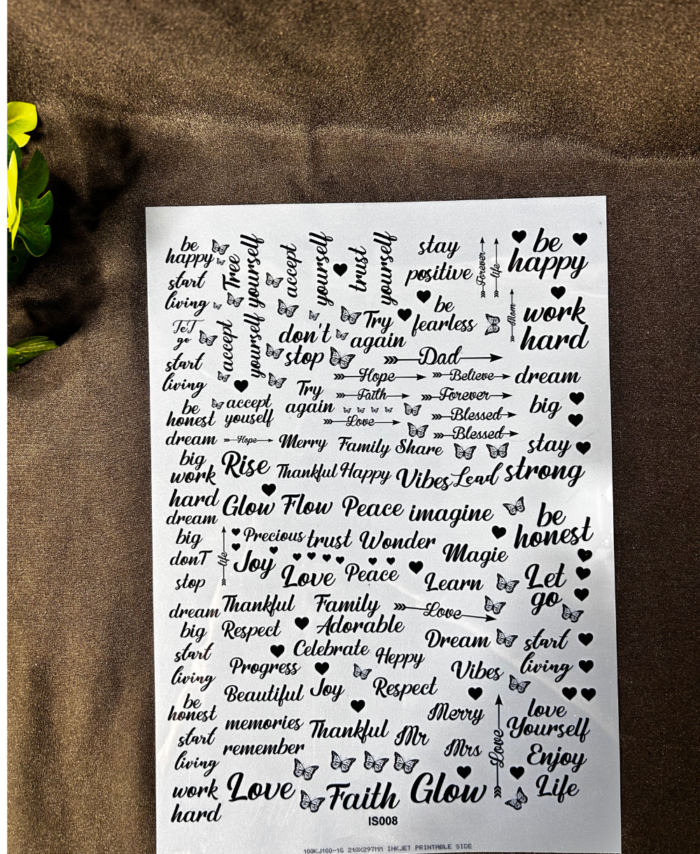 be happy
start living
Tree yourself
accept yourself
trust yourself
stay positive
Forever
life
be happy
LeT go
accept yourself
don't stop
Try again
be fearless
Mom
work hard
start living
Dad
Hope
Believe
dream big
Try again
Faith
Forever
be honest
accept youself
Love
Blessed
Blessed
dream big
Hope
Merry
Family
Share
stay strong
work hard
Rise
Thankful
Happy
Vibes
Lead
Glow
Flow
Peace
imagine
be honest
dream big
life
Precious
trust
Wonder
Magie
donT stop
Joy
Love
Peace
Learn
Let go
dream big
Thankful
Family
Love
Respect
Adorable
start living
Celebrate
Heppy
Dream
start living
Progress
Vibes
be honest
Beautiful
Joy
Respect
Merry
love Yourself
start living
memories
remember
Thankful
Mr
Mrs
Love
Enjoy Life
work hard
Love
Faith
Glow
IS008
100KJ160-1G 210X297MM INKJET PRINTABLE SIDE